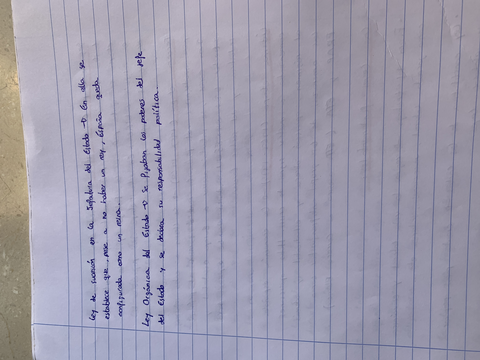 Ley de sucesión en la Jefatura del Estado → En ella se
establece que, pese a no haber un rey, España queda
configurada como un reino.
Ley Orgánica del Estado → Se fijaban los poderes del jefe
del Estado y se declara su responsabilidad política.